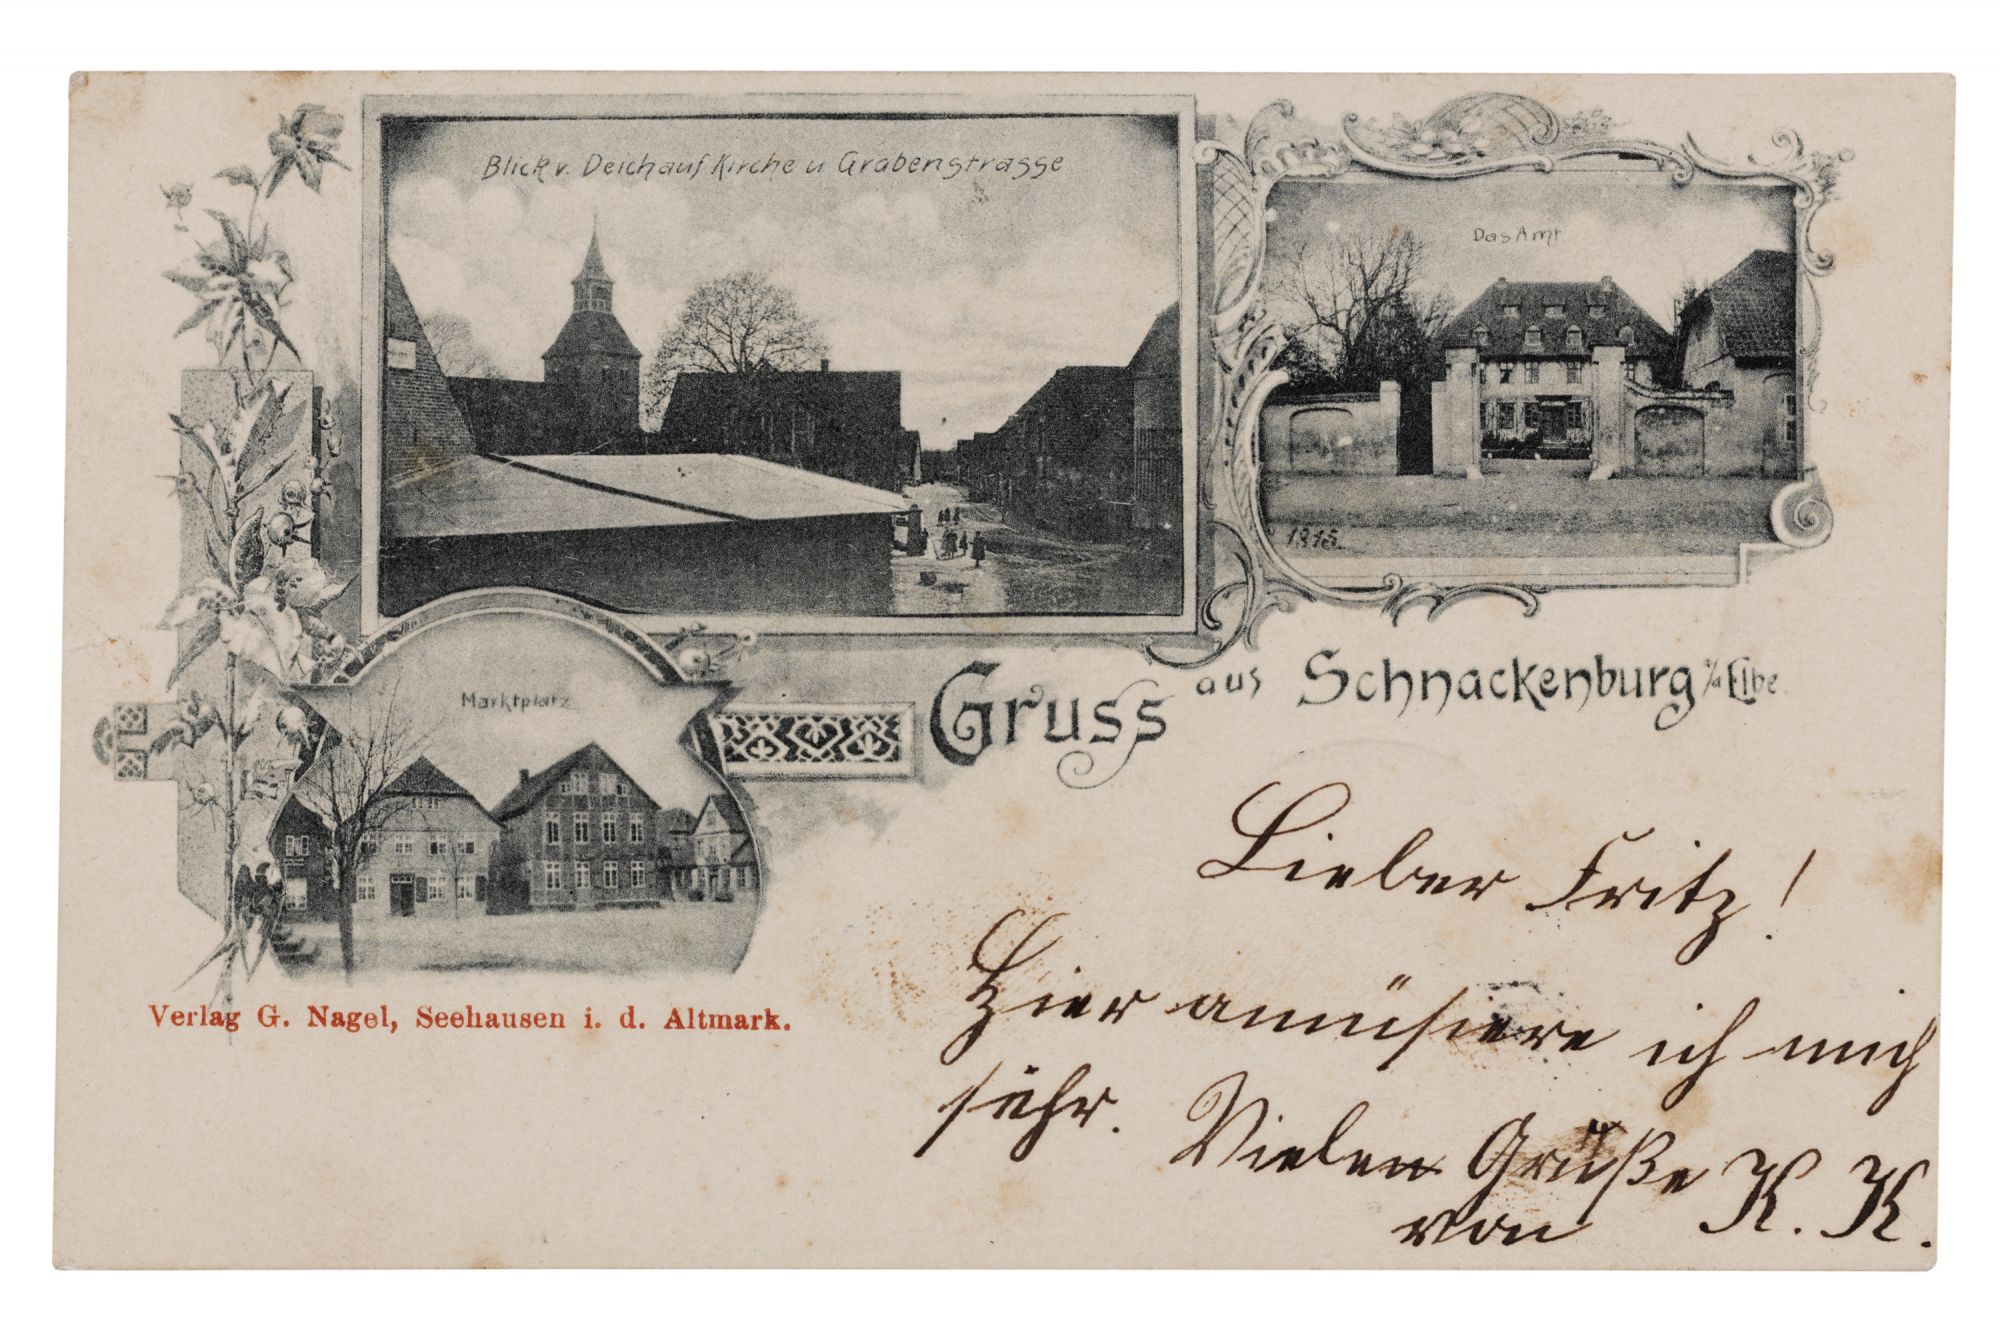 Blick v. Deich auf Kirche u Grabenstrasse
Das Amt
Marktplatz
Gruss aus Schnackenburg a/Elbe.
Lieber Fritz!
Hier amüsiere ich mich
sehr. Vielen Grüße
von K. K.
Verlag G. Nagel, Seehausen i. d. Altmark.